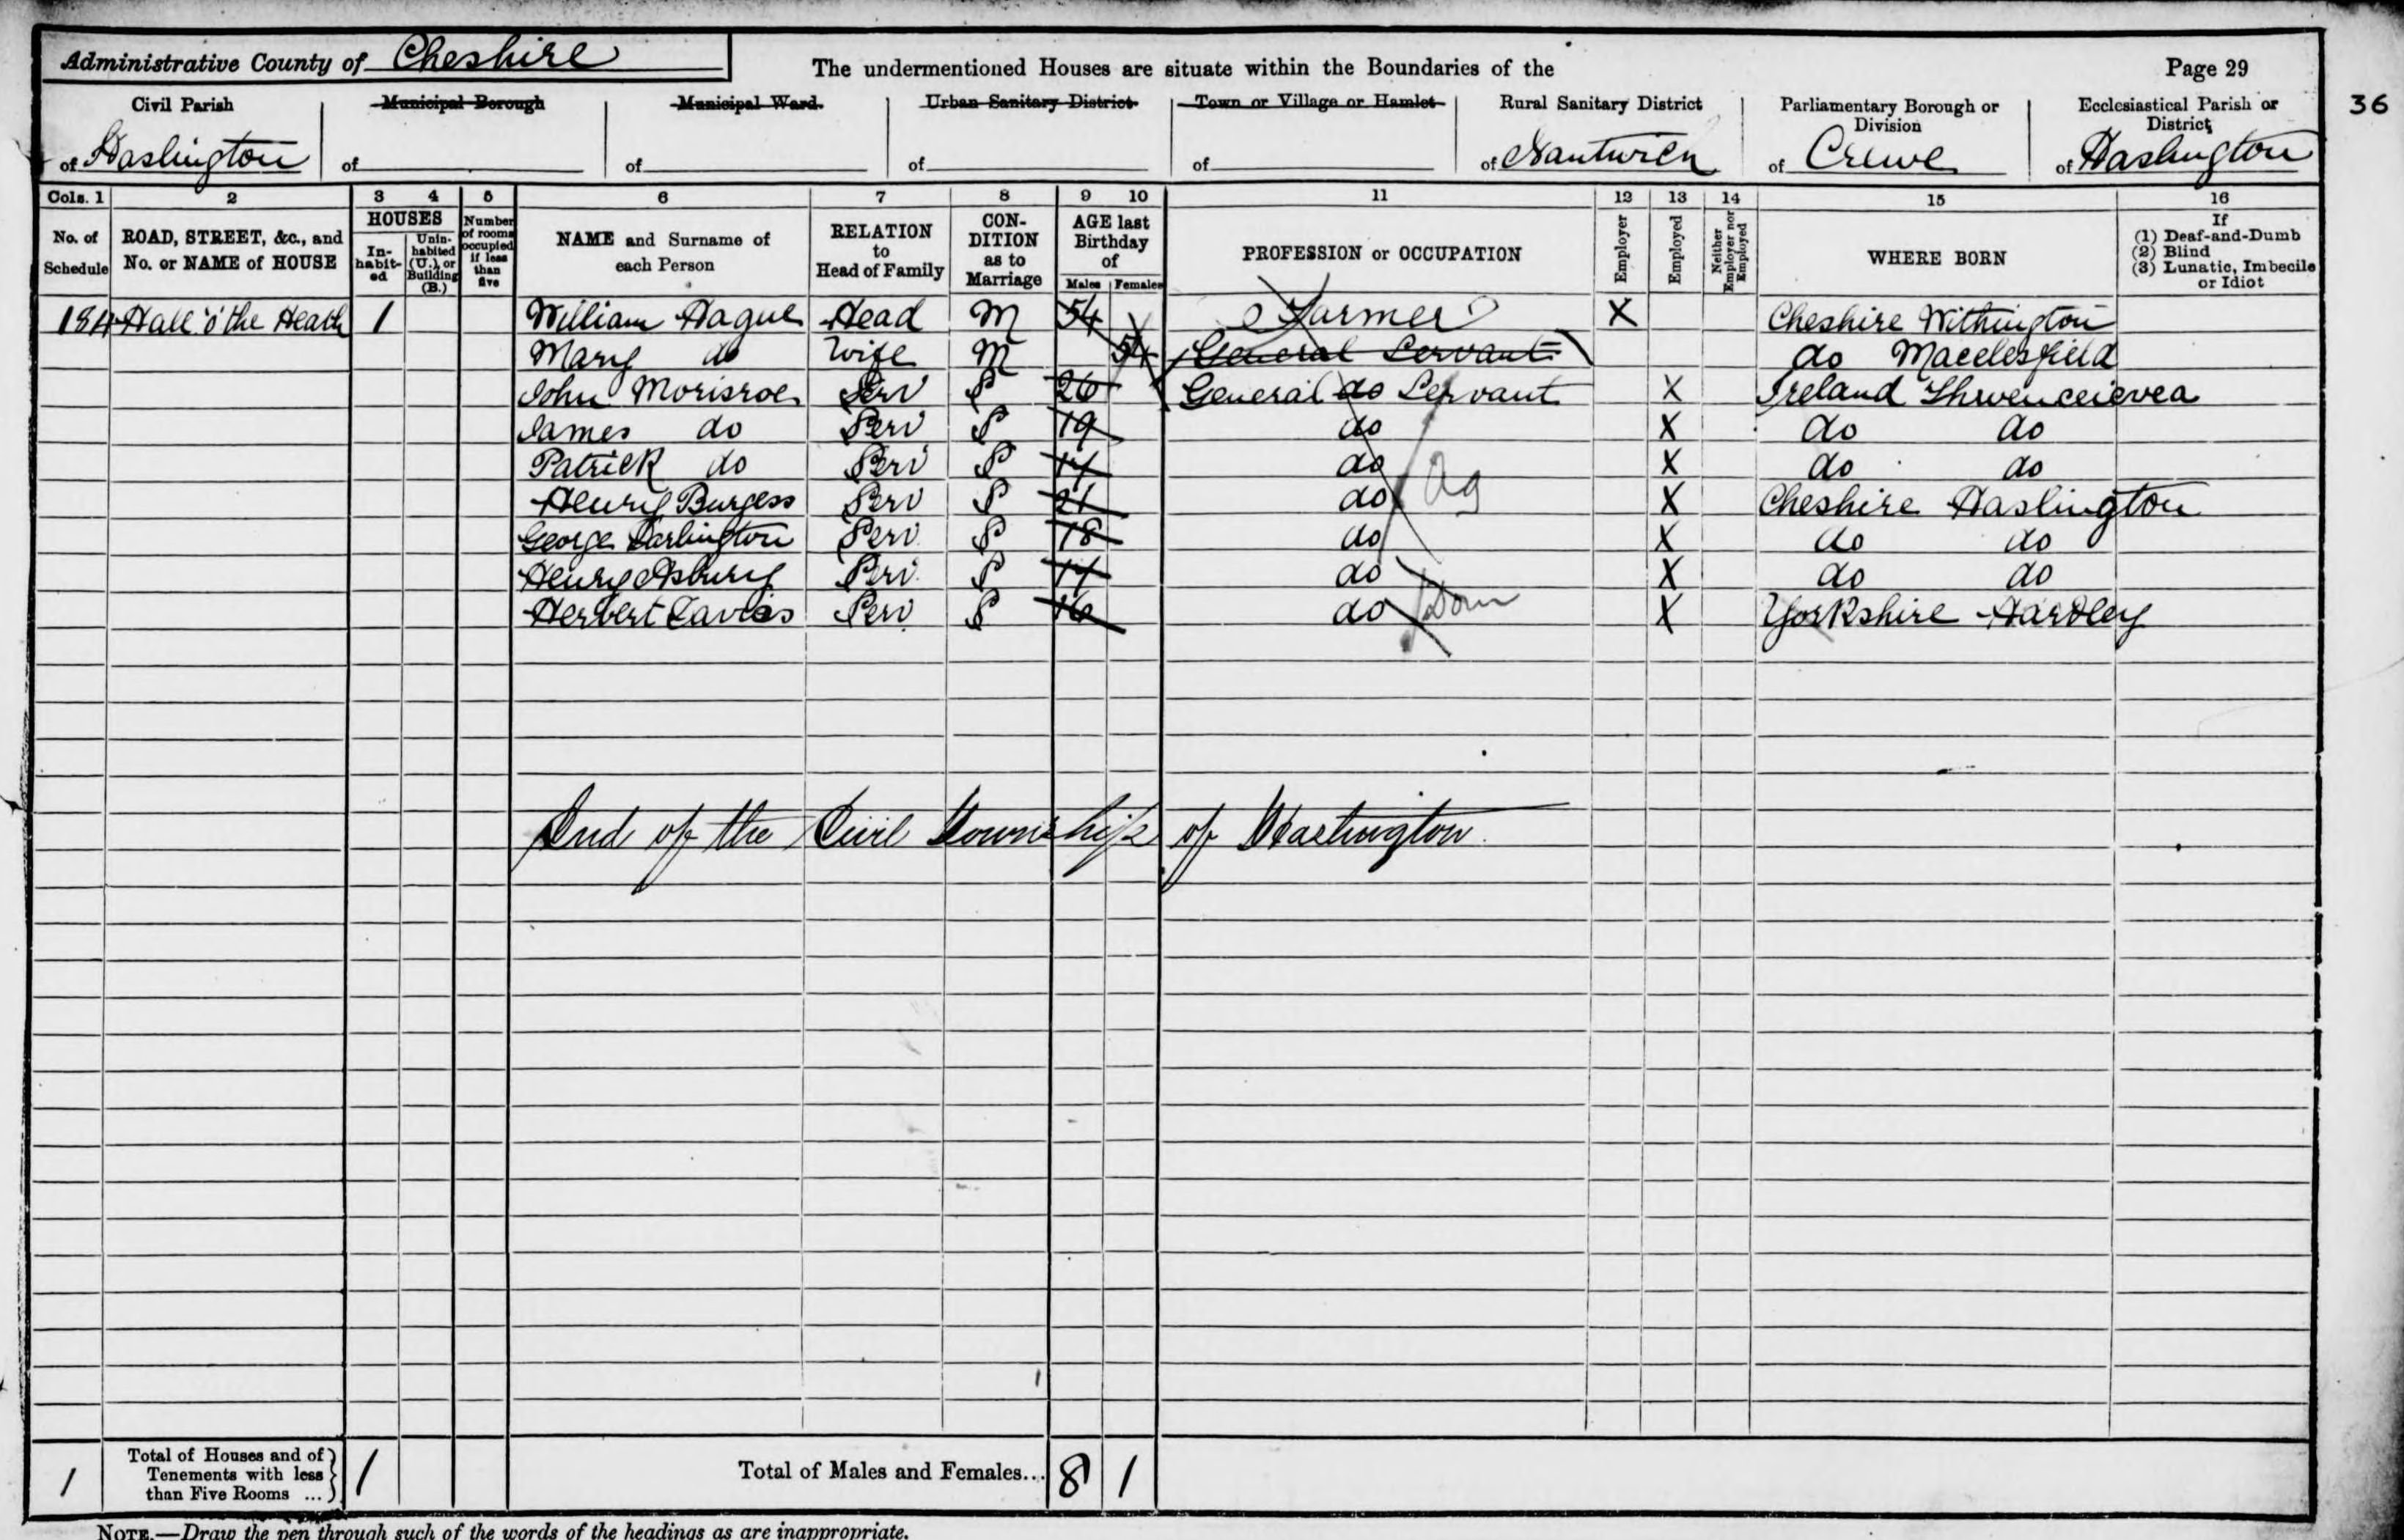 Administrative County of Cheshire
The undermentioned Houses are situate within the Boundaries of the
Page 29
36
Civil Parish of Haslington
Municipal Borough of
Municipal Ward of
Urban Sanitary District of
Town or Village or Hamlet of
Rural Sanitary District of Nantwich
Parliamentary Borough or Division of Crewe
Ecclesiastical Parish or District of Haslington
Cols. 1 2 3 4 5 6 7 8 9 10 11 12 13 14 15 16
No. of Schedule
ROAD, STREET, &c., and No. or NAME of HOUSE
HOUSES
In-habit-ed
Unin-habited (U.), or Building (B.)
Number of rooms occupied if less than five
NAME and Surname of each Person
RELATION to Head of Family
CON-DITION as to Marriage
AGE last Birthday of
Males Females
PROFESSION or OCCUPATION
Employer
Employed
Neither Employer nor Employed
WHERE BORN
If
(1) Deaf-and-Dumb
(2) Blind
(3) Lunatic, Imbecile or Idiot
184 Hall 'o' the Heath 1 William Hague Head M 54 Farmer X Cheshire Withington
Mary do Wife M 54 General Servant do Macclesfield
John Morisroe Serv S 26 General do Servant X Ireland
James do Serv S 19 do X do do
Patrick do Serv S 17 do X do do
Ag
Henry Burgess Serv S 21 do X Cheshire Haslington
George Darlington Serv S 18 do X do do
Henry Asbury Serv S 17 do X do do
Herbert Davies Serv S 16 do Dom X Yorkshire
End of the Civil Township of Haslington
1
Total of Houses and of Tenements with less than Five Rooms ...
1
Total of Males and Females... 8 1
NOTE.—Draw the pen through such of the words of the headings as are inappropriate.